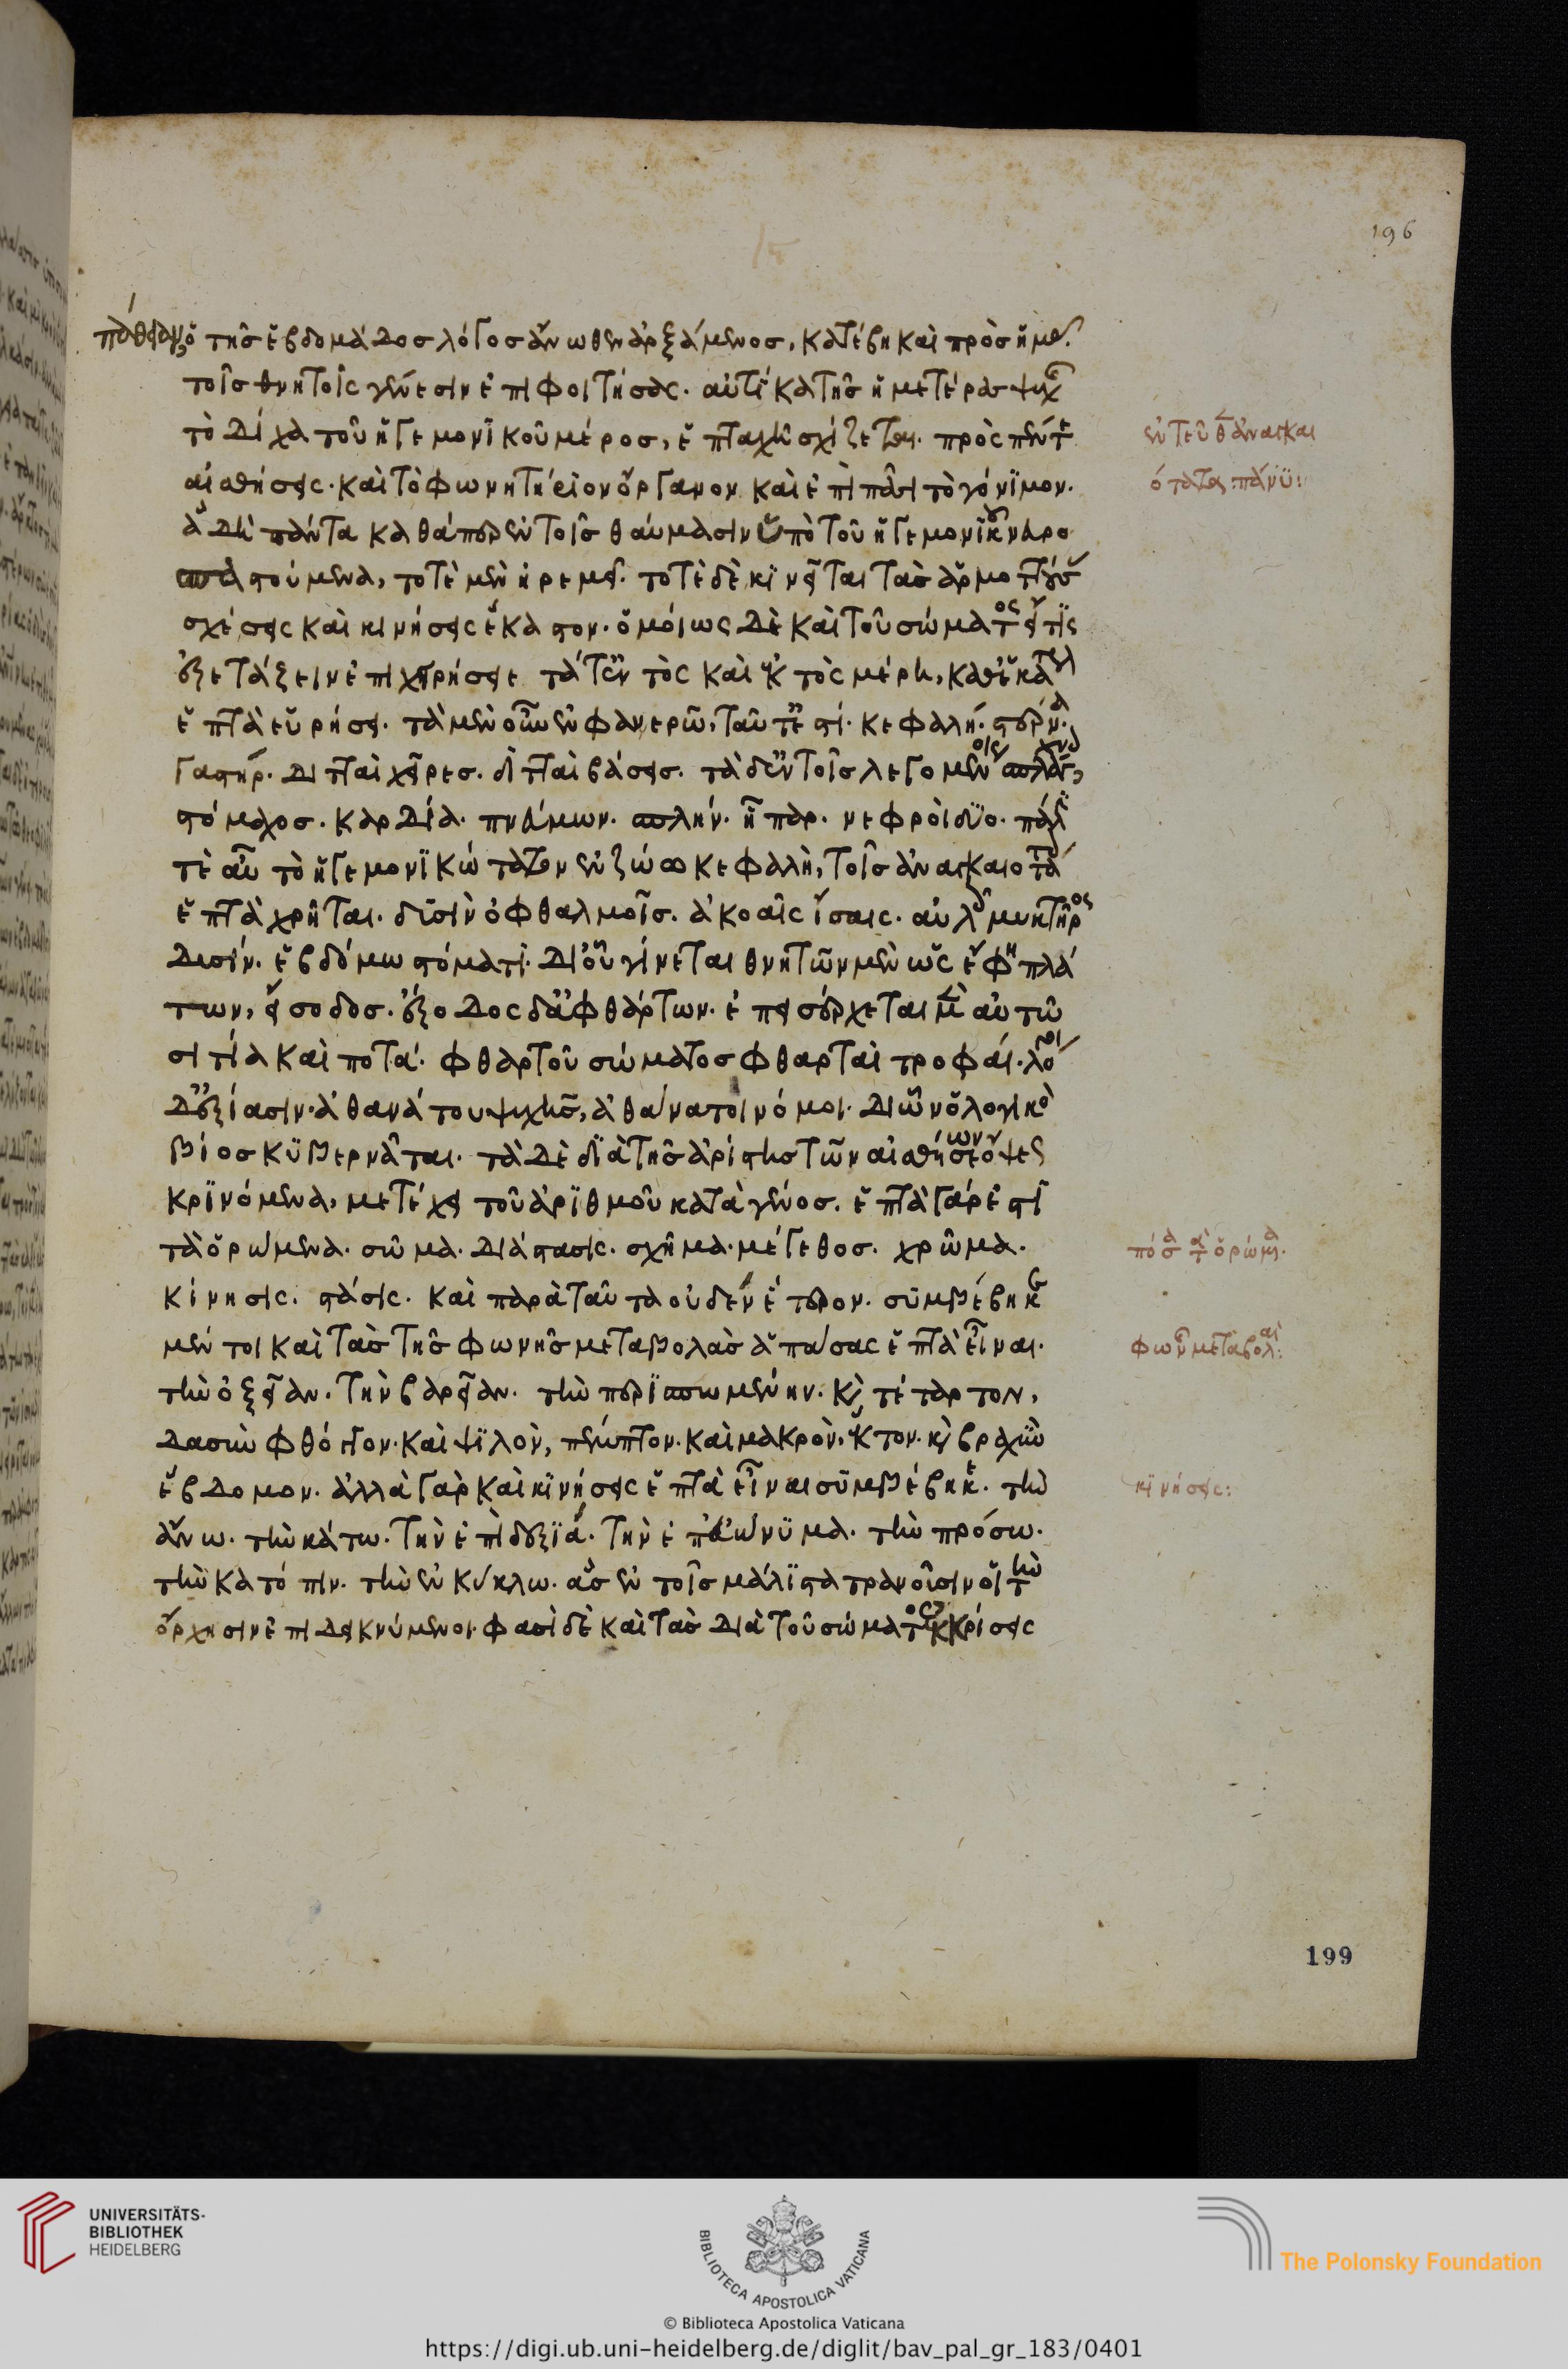 πάθειαν, ὁ τῆς ἑβδομάδος λόγος ἄνωθεν ἀρξάμενος, κατέβη καὶ πρὸς ἡμᾶς.
τοῖς θνητοῖς γένεσιν ἐπιφοιτήσας. αὐτίκα τῆς ἡμετέρας ψυχῆς
τὸ δίχα τοῦ ἡγεμονικοῦ μέρος, ἑπταχῆ σχίζεται. πρὸς πέντε
αἰσθήσεις. καὶ τὸ φωνητήριον ὄργανον καὶ ἐπὶ πᾶσι τὸ γόνιμον.
ἃ δὴ πάντα καθάπερ ἐν τοῖς θαύμασιν ὑπὸ τοῦ ἡγεμονικοῦ νευρο
σπαστούμενα, τοτὲ μὲν ἠρεμεῖ. τοτὲ δὲ κινεῖται τὰς ἁρμοττούσας
σχέσεις καὶ κινήσεις ἕκαστον. ὁμοίως δὲ καὶ τοῦ σώματος εἴ τις
ἐξετάζειν ἐπιχειρήσειε τά τ' ἐντὸς καὶ ἐκτὸς μέρη, καθ' ἑκάτερα
ἑπτὰ εὑρήσει. τὰ μὲν οὖν ἐν φανερῶ, ταῦτ' ἐστί. κεφαλή. στέρνα.
γαστήρ. διτταὶ χεῖρες. διτταὶ βάσεις. τὰ δ' ἐντοῖς λεγομένοις σπλάγχνοις,
στόμαχος. καρδία. πνεύμων. σπλήν. ἧπαρ. νεφροὶ δύο. πάλιν
τὲ αὖ τὸ ἡγεμονικώτατον ἐν ζώω κεφαλὴ, τοῖς ἀναγκαιοτάτοις
ἑπτὰ χρῆται. δυσὶν ὀφθαλμοῖς. ἀκοαῖς ἴσαις. αὐλοῖς μυκτῆρος
δυσίν. ἑβδόμω στόματι. δι' οὗ γίνεται θνητῶν μὲν ὡς ἔφη πλά
των, εἴσοδος. ἔξοδος δ' ἀφθάρτων. ἐπεισέρχεται μὲν αὐτῶ
σιτία καὶ ποτά. φθαρτοῦ σώματος φθαρταὶ τροφαί. λόγοι
δ' ἐξίασιν. ἀθανάτου ψυχῆς, ἀθάνατοι νόμοι. δι' ὧν ὁ λογικὸς
βίος κυβερνᾶται. τὰ δὲ διὰ τῆς ἀρίστης τῶν αἰσθήσεων ὄψεως
κρινόμενα, μετέχει τοῦ ἀριθμοῦ κατὰ γένος. ἑπτὰ γάρ ἐστι
τὰ ὁρώμενα. σῶμα. διάστασις. σχῆμα. μέγεθος. χρῶμα.
κίνησις. στάσις. καὶ παρὰ ταῦτα οὐδὲν ἕτερον. συμβέβηκε
μέν τοι καὶ τὰς τῆς φωνῆς μεταβολὰς ἁπάσας ἑπτὰ εἶναι.
τὴν ὀξεῖαν. τὴν βαρεῖαν. τὴν περισπωμένην. καὶ τέταρτον,
δασὺν φθόγγον. καὶ ψιλὸν, πέμπτον. καὶ μακρὸν, ἕκτον. καὶ βραχὺν
ἕβδομον. ἀλλὰ γὰρ καὶ κινήσεις ἑπτὰ εἶναι συμβέβηκε. τὴν
ἄνω. τὴν κάτω. τὴν ἐπὶ δεξιά. τὴν ἐπ' εὐώνυμα. τὴν πρόσω.
τὴν κατόπιν. τὴν ἐν κύκλω. ἃς ἐν τοῖς μάλιστα τρανοῦσιν οἱ τὴν
ὄρχησιν ἐπιδεικνύμενοι. φασὶ δὲ καὶ τὰς διὰ τοῦ σώματος ἐκκρίσεις
ἐντεῦθεν ἀναγκαι
ότατα πάνυ:
πόσα τὰ ὁρώμενα.
φωνῆς μεταβολαί:
κινήσεις:
196
199
UNIVERSITÄTS-
BIBLIOTHEK
HEIDELBERG
BIBLIOTECA APOSTOLICA VATICANA
The Polonsky Foundation
© Biblioteca Apostolica Vaticana
https://digi.ub.uni-heidelberg.de/diglit/bav_pal_gr_183/0401